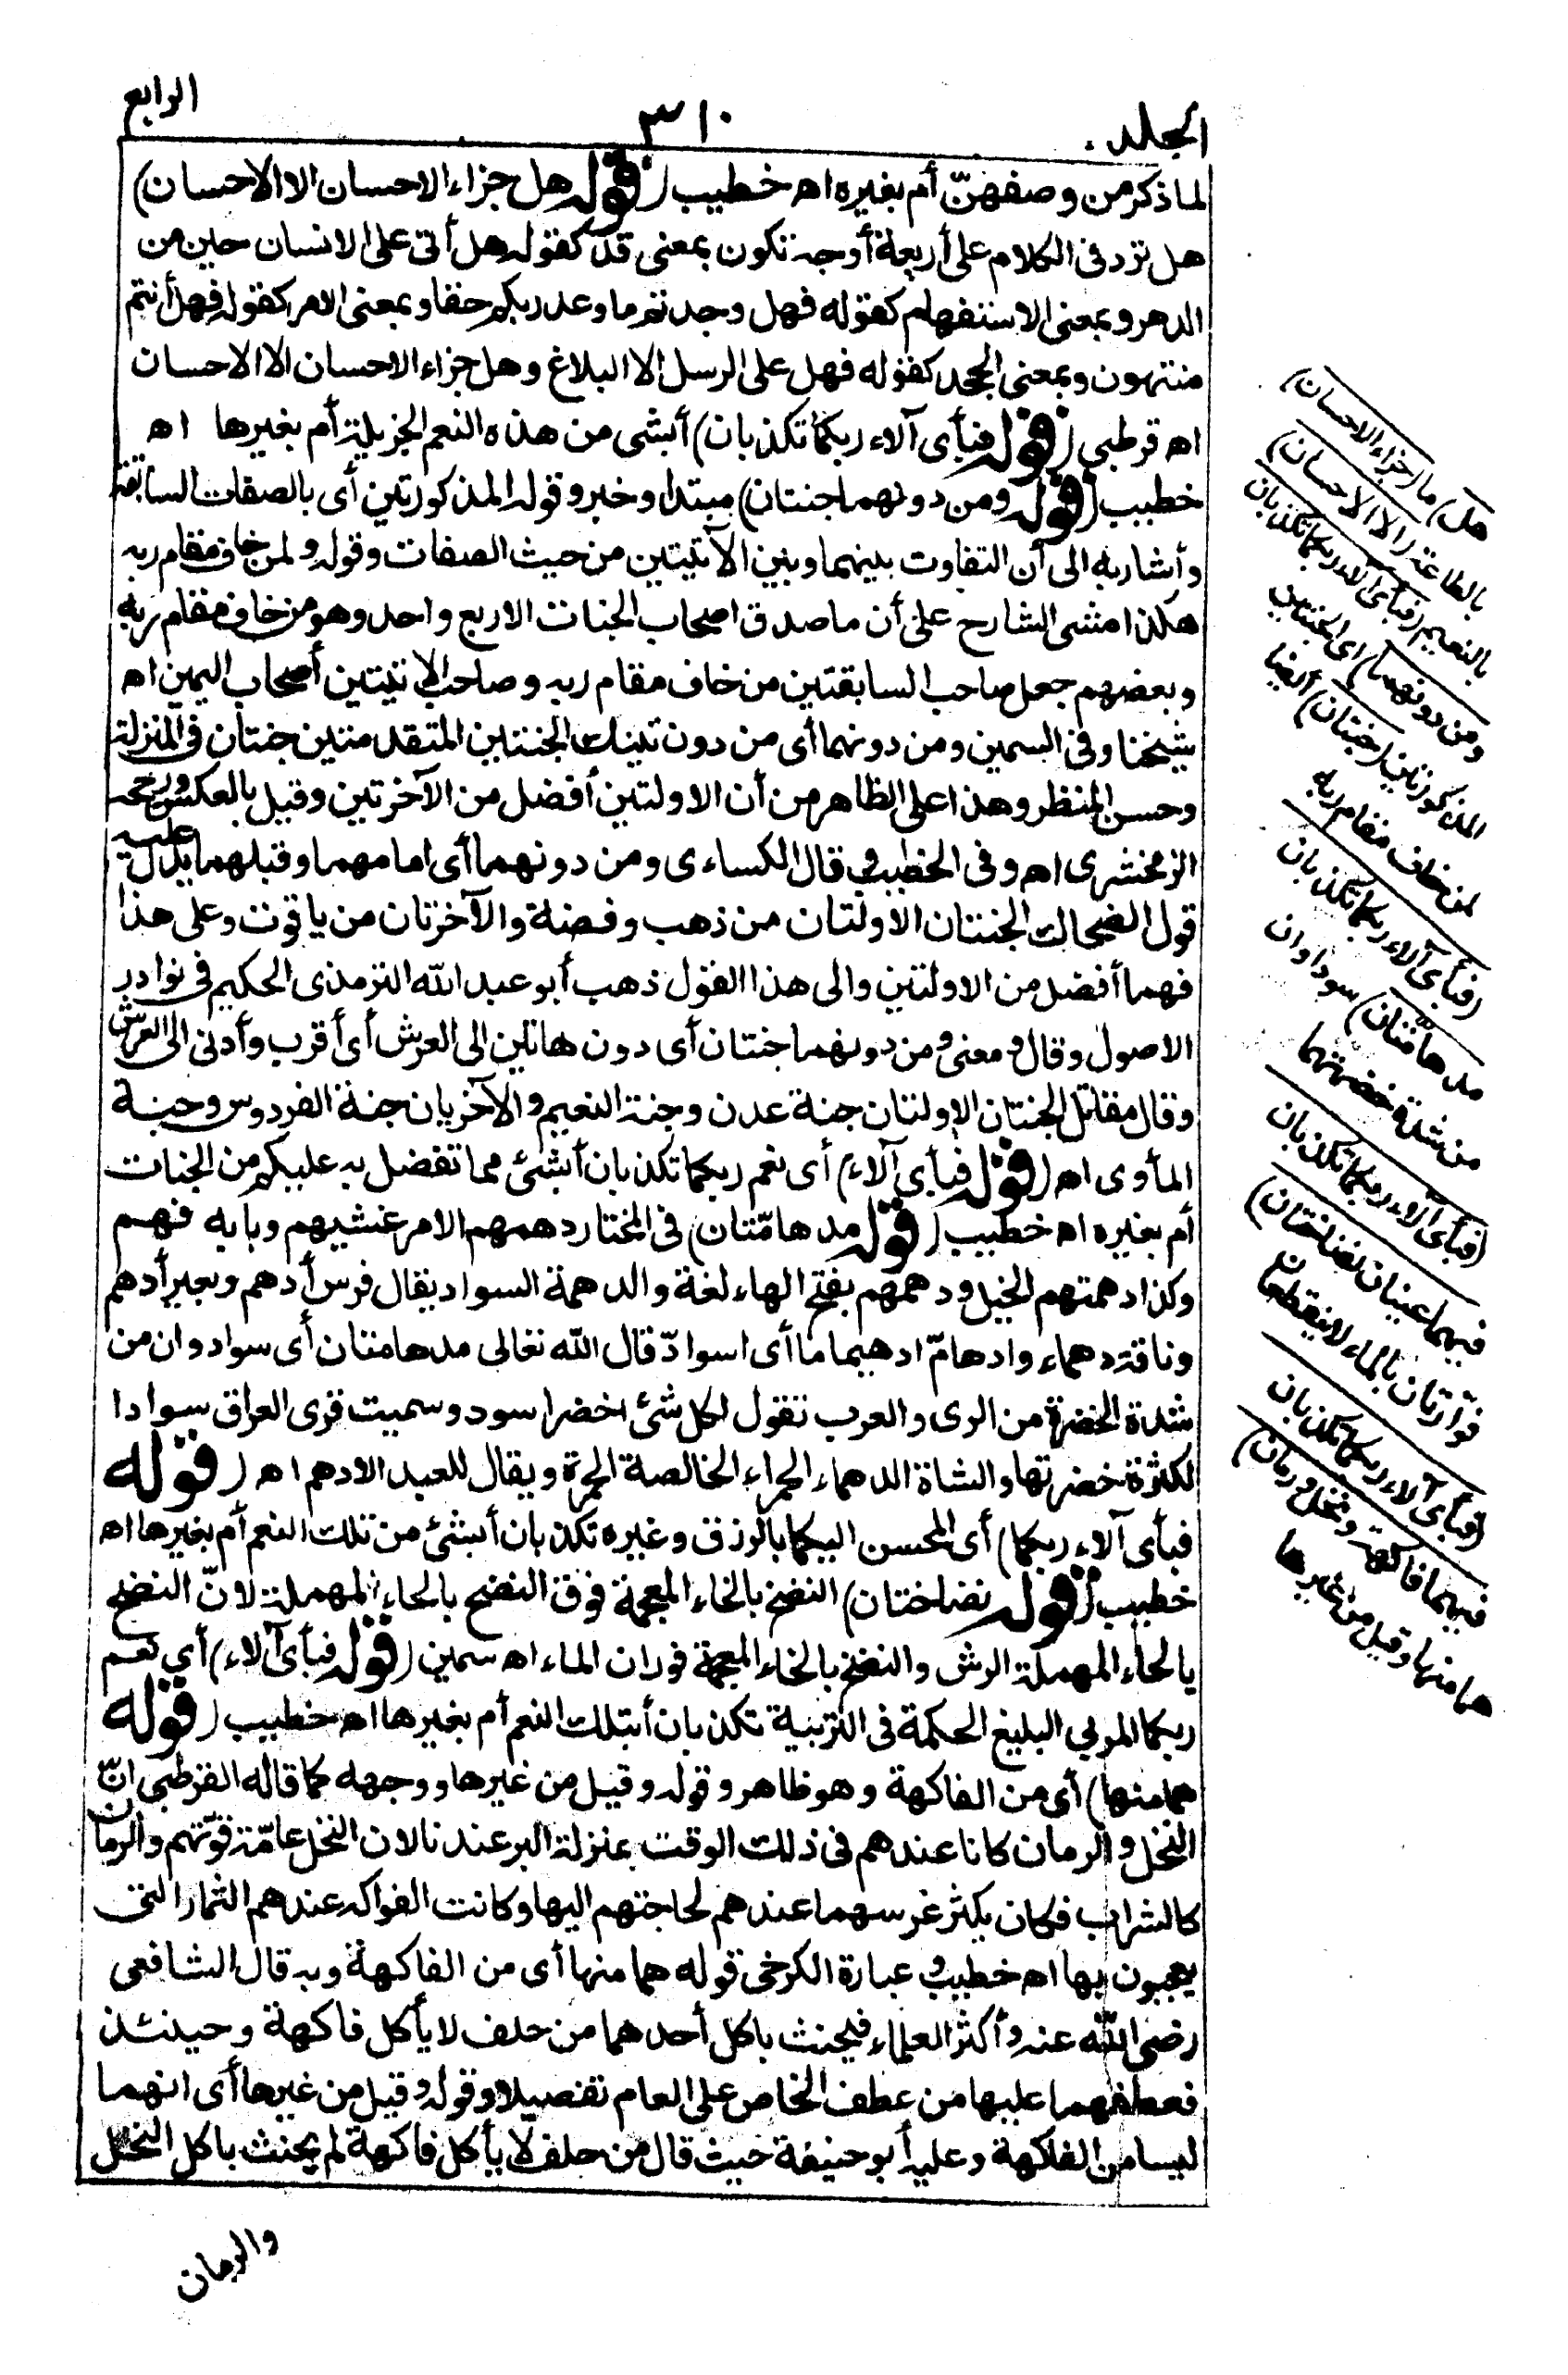 المجلد
٣١٠
الرابع
لما ذكر من وصفهنّ أم بغيره اه خطيب (قوله هل جزاء الاحسان الا الاحسان)
هل ترد فى الكلام على أربعة أوجه تكون بمعنى قد كقوله هل أتى على الانسان حين من
الدهر وبمعنى الاستفهام كقوله فهل وجدتم ما وعد ربكم حقا وبمعنى الامر كقوله فهل أنتم
منتهون وبمعنى الجحد كقوله فهل على الرسل الا البلاغ وهل جزاء الاحسان الا الاحسان
اه قرطبى (قوله فبأى آلاء ربكما تكذبان) أبشى من هذه النعم الجزيلة أم بغيرها اه
خطيب (قوله ومن دونهما جنتان) مبتدا وخبر وقوله المذكورتين أى بالصفات السابقة
وأشار به الى أن التفاوت بينهما وبين الآتيتين من حيث الصفات وقوله ولمن خاف مقام ربه
هكذا مشى الشارح على أن ما صدق اصحاب الجنات الاربع واحد وهو من خاف مقام ربه
وبعضهم جعل صاحب السابقتين من خاف مقام ربه وصاحب الاتيتين أصحاب اليمين اه
شيخنا وفى السمين ومن دونهما أى من دون تينك الجنتين المتقدمتين جنتان فى المنزلة
وحسن المنظر وهذا على الظاهر من أن الاولتين أفضل من الآخرتين وقيل بالعكس ورجحه
الزمخشرى اه وفى الخطيب قال الكساءى ومن دونهما أى امامهما وقبلهما يدل عليه
قول الضحاك الجنتان الاولتان من ذهب وفضة والآخرتان من ياقوت وعلى هذا
فهما أفضل من الاولتين والى هذا القول ذهب أبو عبد الله الترمذى الحكيم فى نوادر
الاصول وقال ومعنى ومن دونهما جنتان أى دون هاتين الى العرش أى أقرب وأدنى الى العرش
وقال مقاتل الجنتان الاولتان جنة عدن وجنة النعيم والآخريان جنة الفردوس وجنة
المأوى اه (قوله فبأى آلاء) أى نعم ربكما تكذبان أبشئ مما تفضل به عليكم من الجنات
أم بغيره اه خطيب (قوله مدهامّتان) فى المختار دهمهم الامر غشيهم وبابه فهم
وكذا دهمتهم الخيل ودهمهم بفتح الهاء لغة والدهمة السواد يقال فرس أدهم وبعير أدهم
وناقة دهماء وادهامّ ادهيماما أى اسوادّ قال الله تعالى مدهامتان أى سوادوان من
شدة الخضرة من الرى والعرب تقول لكل شئ اخضر اسود وسميت قرى العراق سوادا
لكثرة خضرتها والشاة الدهماء الحمراء الخالصة الحمرة ويقال للعبد الادهم اه (قوله
فبأى آلاء ربكما) أى المحسن اليكما بالرزق وغيره تكذبان أبشئ من تلك النعم أم بغيرها اه
خطيب (قوله نضاختان) النضخ بالخاء المعجمة فوق النضح بالحاء المهملة لانّ النضح
بالحاء المهملة الرش والنضخ بالخاء المعجمة فوران الماء اه سمين (قوله فبأى آلاء) أى نعم
ربكما المربى البليغ الحكمة فى التربية تكذبان أبتلك النعم أم بغيرها اه خطيب (قوله
هما منها) أى من الفاكهة وهو ظاهر وقوله وقيل من غيرها ووجهه كما قاله القرطبى انّ
النخل والرمان كانا عندهم فى ذلك الوقت بمنزلة البر عندنا لان النخل عامّة قوّتهم والرمان
كالشراب فكان يكثر غرسهما عندهم لحاجتهم اليها وكانت الفواكه عندهم الثمار التى
يعجبون بها اه خطيب وعبارة الكرخى قوله هما منها أى من الفاكهة وبه قال الشافعى
رضى الله عنه وأكثر العلماء فيحنث باكل أحدهما من حلف لا يأكل فاكهة وحينئذ
فعطفهما عليها من عطف الخاص على العام تفصيلا وقوله وقيل من غيرها أى انهما
ليسا من الفاكهة وعليه أبو حنيفة حيث قال من حلف لا يأكل فاكهة لم يحنث باكل النخل
والرمان
هل) ما (جزاء الاحسان)
بالطاعة (الا الاحسان)
بالنعيم (فبأى آلاء ربكما تكذبان
ومن دونهما) اى الجنتين
المذكورتين (جنتان) أيضا
لمن خاف مقام ربه
(فبأى آلاء ربكما تكذبان
مدهامّتان) سوداوان
من شدة خضرتهما
(فبأى آلاء ربكما تكذبان
فيهما عينان نضاختان)
فوّارتان بالماء لا ينقطعان
(فبأى آلاء ربكما تكذبان
فيهما فاكهة ونخل ورمان)
هما منها وقيل من غيرها